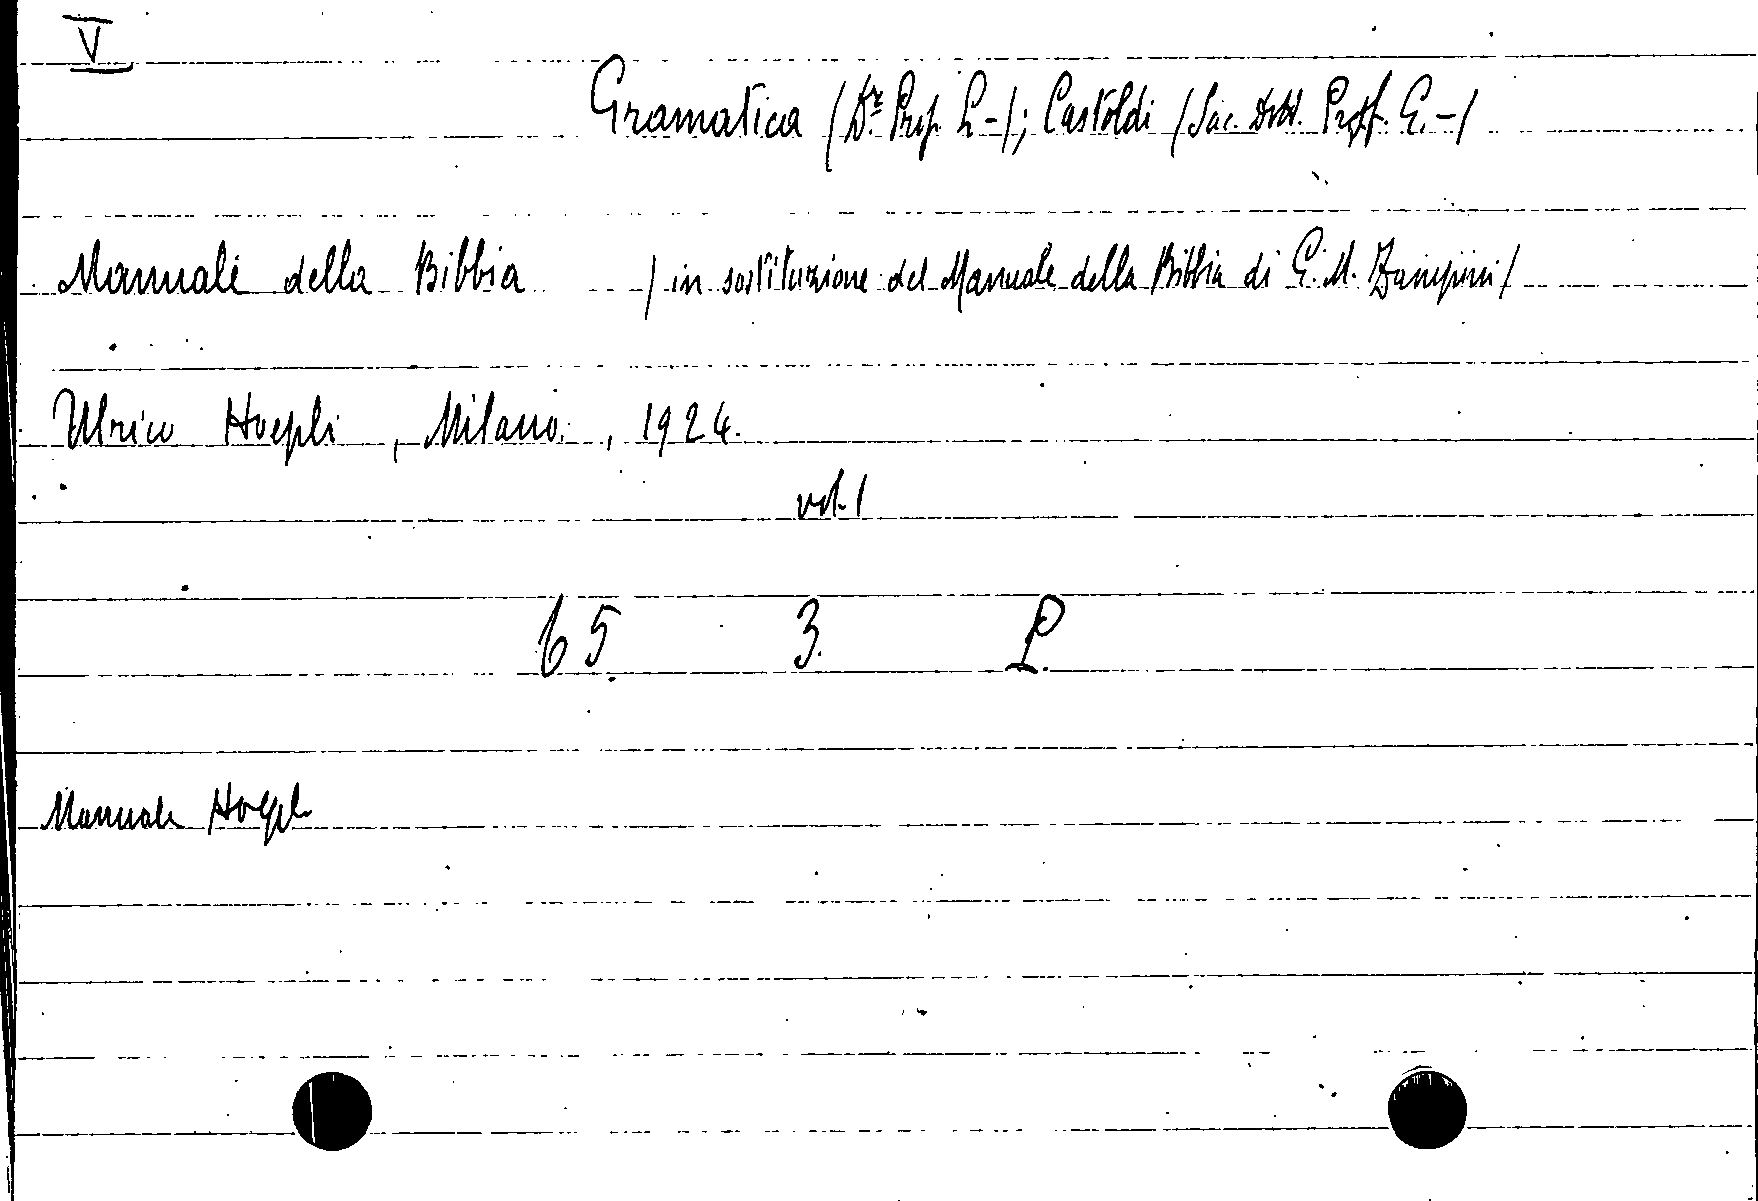 V
Gramatica (Dr. Prof. L-); Castoldi (Sac. Dott. Prof. G.-)
Manuale della Bibbia (in sostituzione del Manuale della Bibbia di G. M. Zampini)
Ulrico Hoepli, Milano, 1924.
vol. 1
65 3 L.
Manuale Hoepli